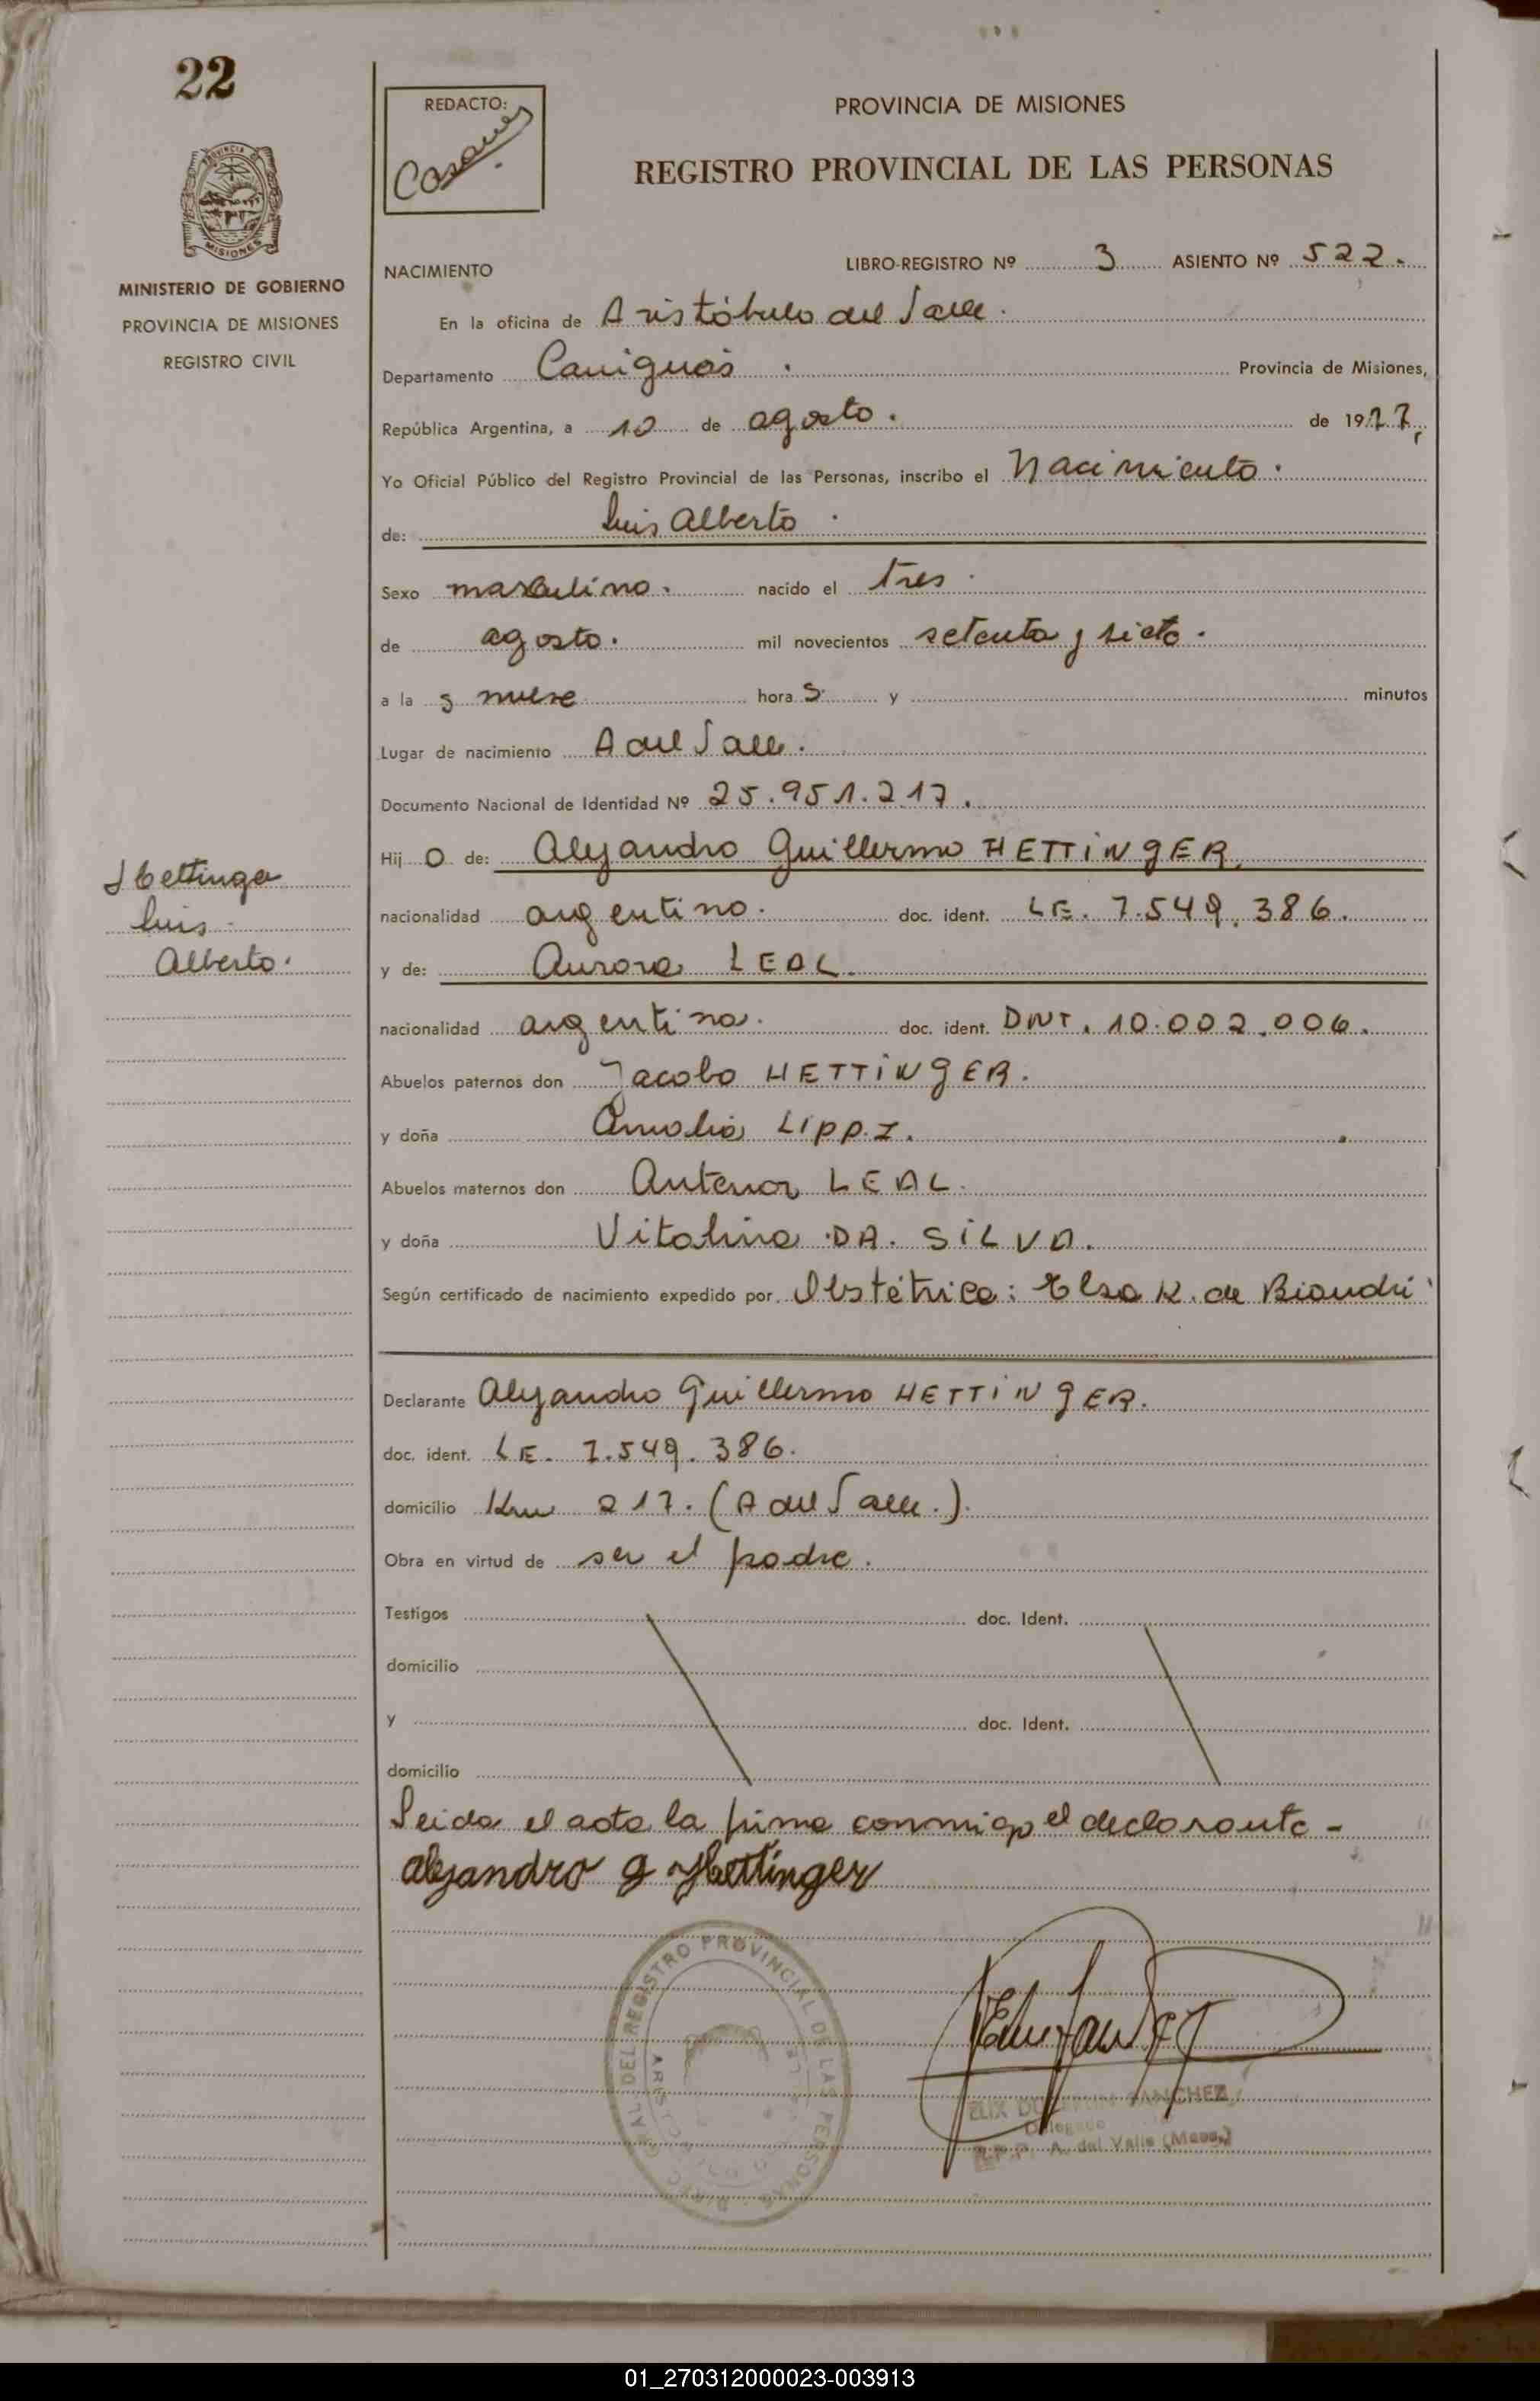 22
REDACTO:
PROVINCIA DE MISIONES
REGISTRO PROVINCIAL DE LAS PERSONAS
PROVINCIA DE
MISIONES
MINISTERIO DE GOBIERNO
PROVINCIA DE MISIONES
REGISTRO CIVIL
NACIMIENTO
LIBRO-REGISTRO Nº 3 ASIENTO Nº 522.
En la oficina de Aristóbulo del Valle.
Departamento Cainguás. Provincia de Misiones,
República Argentina, a 10 de agosto. de 1977,
Yo Oficial Público del Registro Provincial de las Personas, inscribo el Nacimiento.
de: Luis Alberto.
Sexo masculino. nacido el tres.
de agosto. mil novecientos setenta y siete.
a la s nueve hora s y minutos
Lugar de nacimiento A del Valle.
Documento Nacional de Identidad Nº 25.951.217.
Hij o de: Alejandro Guillermo HETTINGER.
Hettinger
Luis
Alberto.
nacionalidad argentino. doc. ident. LE. 7.549.386.
y de: Aurora LEAL.
nacionalidad argentina. doc. ident. DNI. 10.002.006.
Abuelos paternos don Jacobo HETTINGER.
y doña Amalia LIPPZ.
Abuelos maternos don Antenor LEAL.
y doña Vitalina DA. SILVA.
Según certificado de nacimiento expedido por. Obstétrica: Elsa K. de Biondri
Declarante Alejandro Guillermo HETTINGER.
doc. ident. LE. 7.549.386.
domicilio Km 217. (A del Valle.).
Obra en virtud de ser el padre.
Testigos doc. Ident.
domicilio
y doc. Ident.
domicilio
Leida el acta la firma conmigo el declarante -
alejandro g Hettinger
GRAL. DEL REGISTRO PROVINCIAL DE LAS PERSONAS
SANCHEZ
Delegado
R.P.P. A. del Valle (Mnes.)
01_270312000023-003913